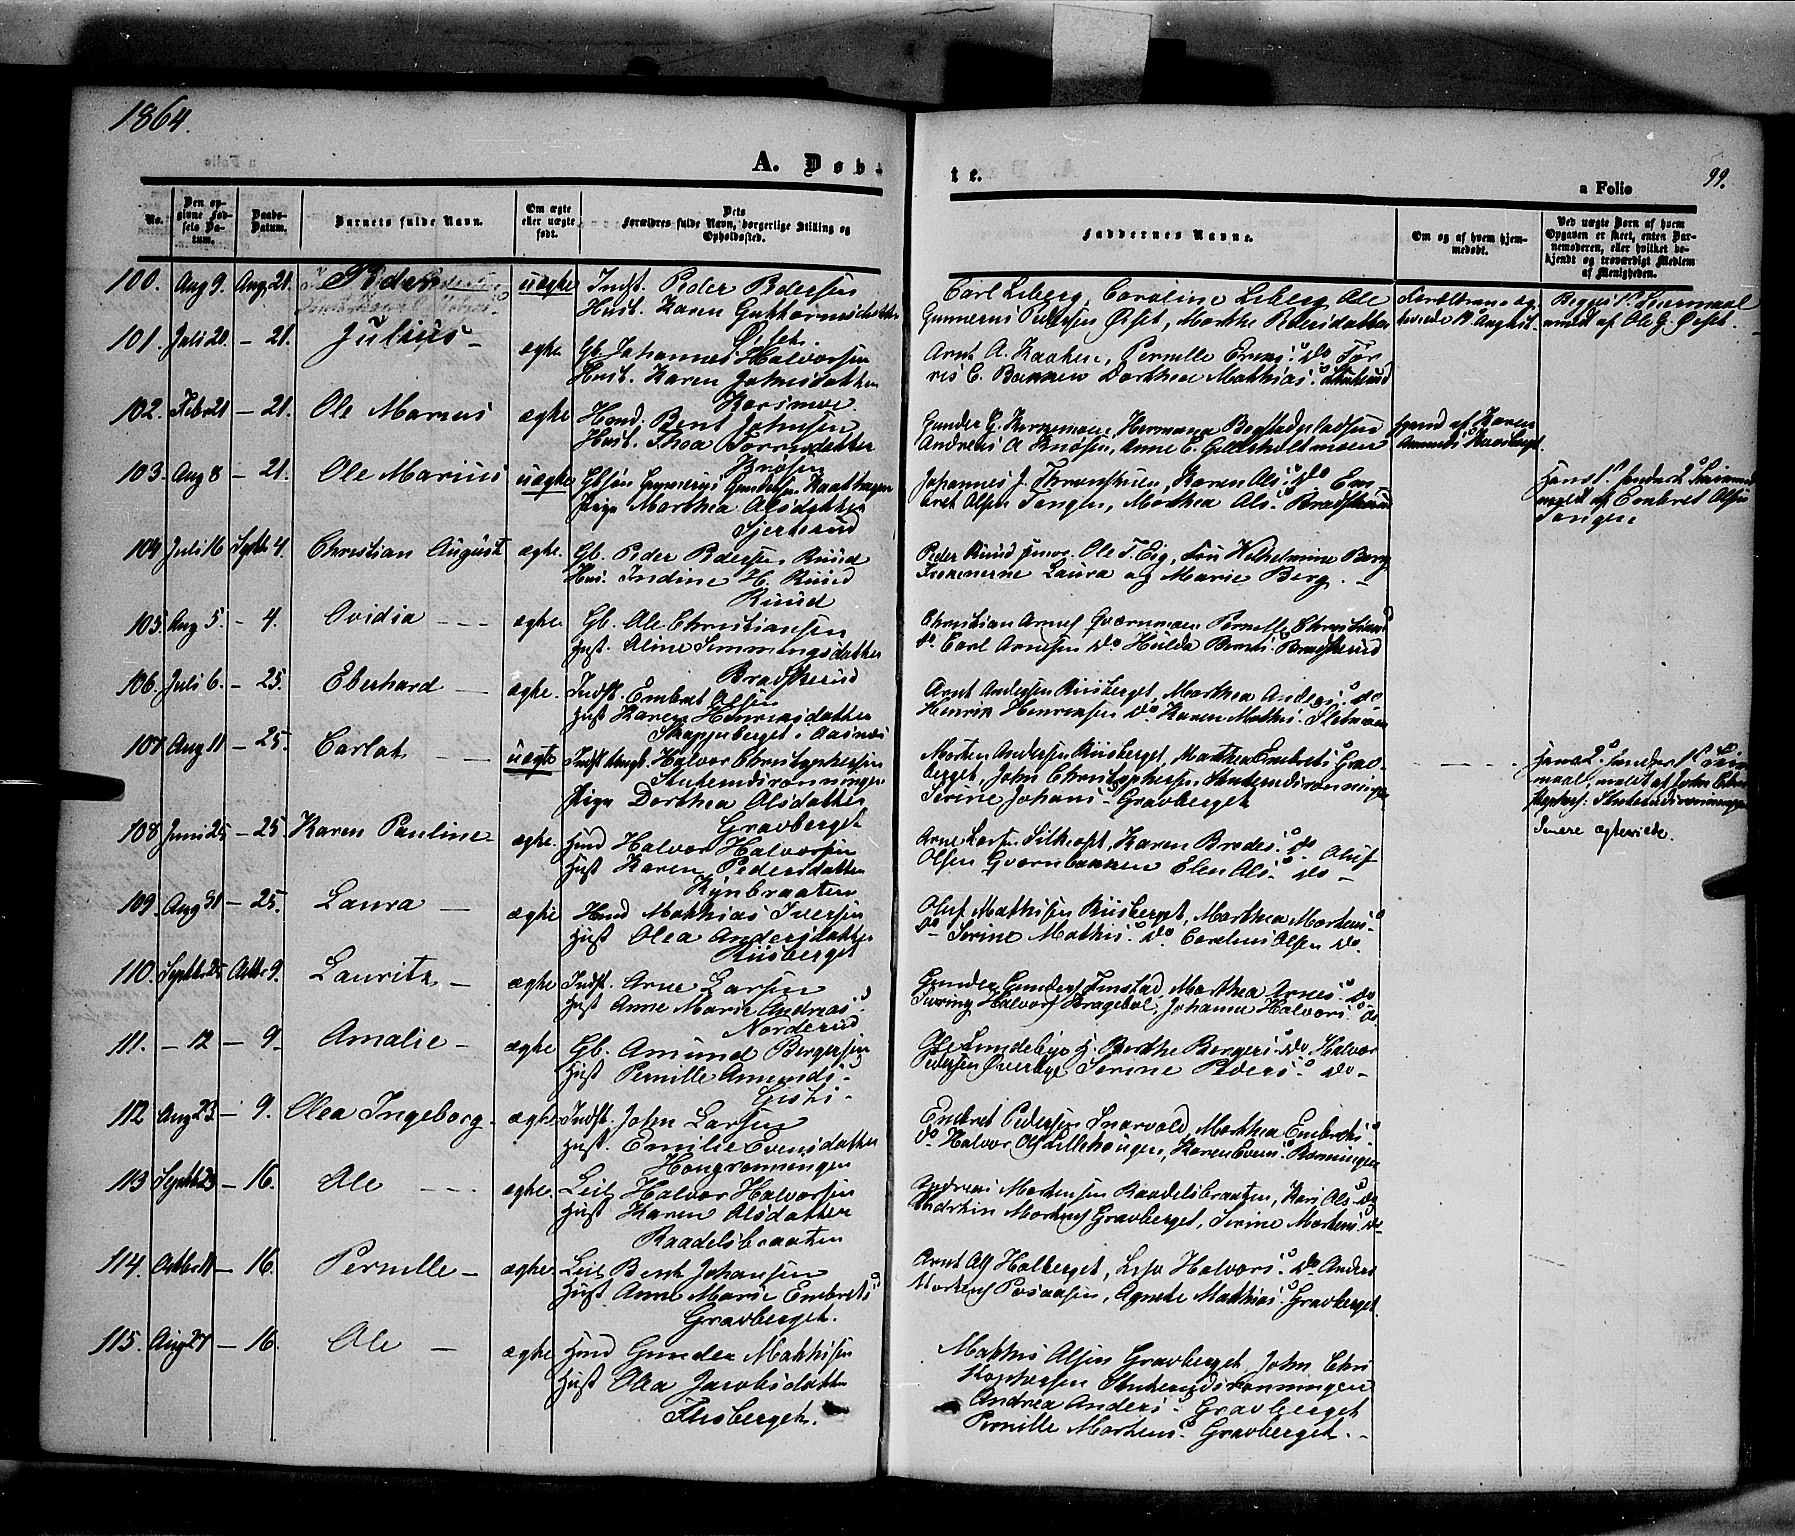 1864.
A. Døb-
te.
99.
a Folio
No.
Den op-
givne Fød-
sels Da-
tum.
Daabs-
Datum.
Barnets fulde Navn.
Om ægte
eller uægte
født.
Dets
Forældres fulde Navn, borgerlige Stilling og
Opholdssted.
Faddernes Navne.
Om og af hvem hjem-
medøbt.
Ved uægte Børn af hvem
Opgaven er skeet, enten Bar-
nemoderen, eller hvilket be-
kjendt og troværdigt Medlem
af Menigheden.
100. Aug 9. Aug. 21. Peder uægte Indst. Peder Pedersen
Hust. Karen Guttormsdatter
Øset.
Carl Liberg, Caroline Liberg, Ole
Gunnerus Pedersen Øset, Marthe Pedersdatter
Forældrene æg-
teviede 19 August.
Begges 1ste Leiermaal
anmed. af Ole G. Øset.
101. Juli 20. - 21. Julius - ægte Gb. Johannes Halvorsen
Hust. Karen Johnsdatter
Korsmoe.
Arnt A. Kaaken, Pernille Erens. do Tor-
ris C. Bakken Dorthea Mathias.
102. Febr 21 - 21. Ole Marius ægte Hmd. Bent Johnsen
Hust. Thea Torersdatter
Knøsen
Gunder G. Korsmoen, Hermana Bogstadpladsen
Andreas A Knøsen, Anne E.
103. Aug 8 - 21. Ole Marius uægte Gbsøn Gunnerus Gundersen Kaathagen
Pige Marthea Olsdatter
Gjerterud
Johannes J. Thronstuen, Karen Ols. do Em-
bret Olsen Tangen, Marthea Ols. Bradskerud
Hans 1ste hendes
meldt af Embret Olsen
Tangen
104. Juli 16 Septb 4. Christian August ægte. Gb. Peder Pedersen Ruud
Hus. Indine H. Ruud
Ruud
Peder Ruud junior. Ole T. Eig, Fru Wilhelmine Berg
Frøknerne Laura og Marie Berg. -
105. Aug 5. - 4. Ovidia - - - ægte. Gb. Ole Christiansen
Hust. Oline Simmingsdatter
Bradskerud
Christian Arnes Qværnmoen Pernille Christians
do Carl Arnesen do Hulda Bernts. Bradskerud
106. Juli 6. - 25. Eberhard - ægte. Indst. Embret Olsen
Hust Karen Henriksdatter
Skappenberget i Aasnæs
Arnt Andersen Riisberget, Marthea Anders. do
Henrik Henriksen do. Karen Mathis. Sletmoen
107 Aug 11 - 25. Carlot - - uægte Indst Ungk. Halvor Christophersen
Stuterudsrønningen
Pige Dorthea Olsdatter
Gravberget
Morten Andersen Riisberget, Marthea Embrets. Grav-
berget, John Christophersen, Stuterudsrønningen
Serine Johans. Gravberget
Hans 2det hendes 1ste Leier-
maal, meldt af John Chri-
stophers. Stuterudsrønningen
Senere ægteviede.
108 Juni 25 - 25 Karen Pauline ægte. Hmd Halvor Halvorsen
Hust Karen Pedersdatter
Kynbraaten
Arne Larsen Silkoset, Karen Brodes. do Oluf
Olsen Qværnbakken Elen Ols. do -
109. Aug 31 - 25. Laura - ægte Hmd Mathias Iversen
Hust Olea Andersdatter
Riisberget
Oluf Mathisen Riisberget, Marthea Mortens.
do Serine Mathis. do Carelius Olsen do.
110. Septbr 25 Octbr 9. Lauritz - ægte Indst. Arne Larsen
Hust Anne Marie Andreas.
Norderud
Gunder Gunders Finstad, Marthea Arnes. do
Halvors Bragebøl, Johanne Halvors. do.
111. - 12 - 9. Amalie - ægte Gb. Amund Bergersen
Hust Pernille Amunds -
Ole Lundebye g. Berthe Bergers. do Halvor
Pedersen Overbye Serine Peders. do -
112 Aug 23. - 9. Olea Ingeborg. ægte. Indst. John Larsen
Hust. Emilie Evensdatter
Hougrønningen
Embret Pedersen Snarvold, Marthea Embrets.
do Halvor Ols Lillehougen, Karen Evens. Rønningen
113 Septbr 23 - 16. Ole - - - ægte. Leil. Halvor Halvorsen
Hust Karen Olsdatter
Raadelsbraaten
Andreas Mortensen Raadelsbraaten, Kari Ols. do
Martin Mortens Gravberget, Serine Mortens. do.
114. Octbr 11 - 16. Pernille - ægte. Leil. Bent Johansen
Hust Anne Marie Embrets.
Gravberget.
Arnt Ols Halberget, Lisa Halvors. do. Anders
Mortens Posaasen, Agnete Mathias. Gravberget.
115. Aug 27 - 16. Ole - ægte Hmd Gunder Mathisen
Hust Olea Jacobsdatter
Flisberget.
Mathis Olsen Gravberget, John Chri-
stophersen Stuterudsrønningen
Andrea Anders. Gravberget
Pernille Mortens. Gravberget. -